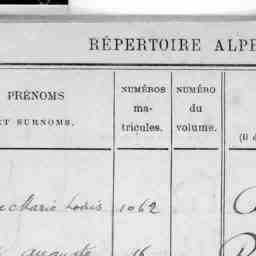 RÉPERTOIRE ALPH
PRÉNOMS
ET SURNOMS.
NUMÉROS
ma-
tricules.
NUMÉRO
du
volume.
(Il
Marie Louis 1062
Auguste 16